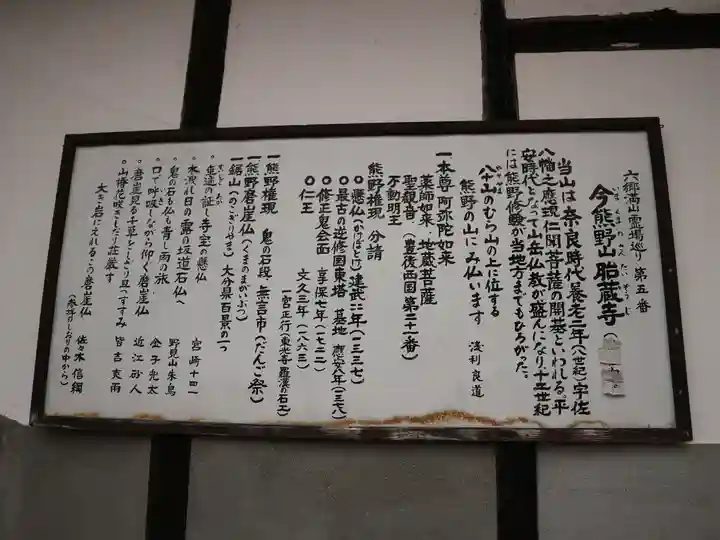 六郷満山霊場巡り 第五番
今熊野山 胎蔵寺
いまくまのさん たいぞうじ
当山は奈良時代養老二年(八世紀)宇佐
八幡之應現仁聞菩薩の開基といわれる。平
安時代となって山岳仏教が盛んになり、十二世紀
には熊野修験が当地方までもひろがった。
八十山のむら山の上に位する
熊野の山にみ仏います 浅利良道
一 本尊 阿弥陀如来
薬師如来、地蔵菩薩
聖観音 (豊後西国第二十一番)
不動明王
熊野権現 分請
◎ 懸仏(かけぼとけ)建武四年(一三三七)
◎ 最古の逆修国東塔 墓地 應安八年(一三七五)
◎ 修正鬼会面 享保七年(一七二二)
◎ 仁王 文久三年(一八六三)
一 熊野権現 鬼の石段 無言市(だんご祭)
一 熊野磨崖仏(くまのまがいぶつ)
一 鋸山(のこぎりやま)大分県百景の一つ
○ 重造の証し寺宝の懸仏 宮崎十四一
○ 木洩れ日の露の坂道石仏へ 野見山朱鳥
○ 鬼の石も仏も青し雨の旅 金子兜太
○ 口で呼吸しながら仰ぐ磨崖仏 近江砂人
○ 磨崖見る千草をしとり具へすすみ 皆吉爽雨
○ 山椿花咲きしだり荘厳す
大き岩にえれるこの磨崖仏 佐々木信綱